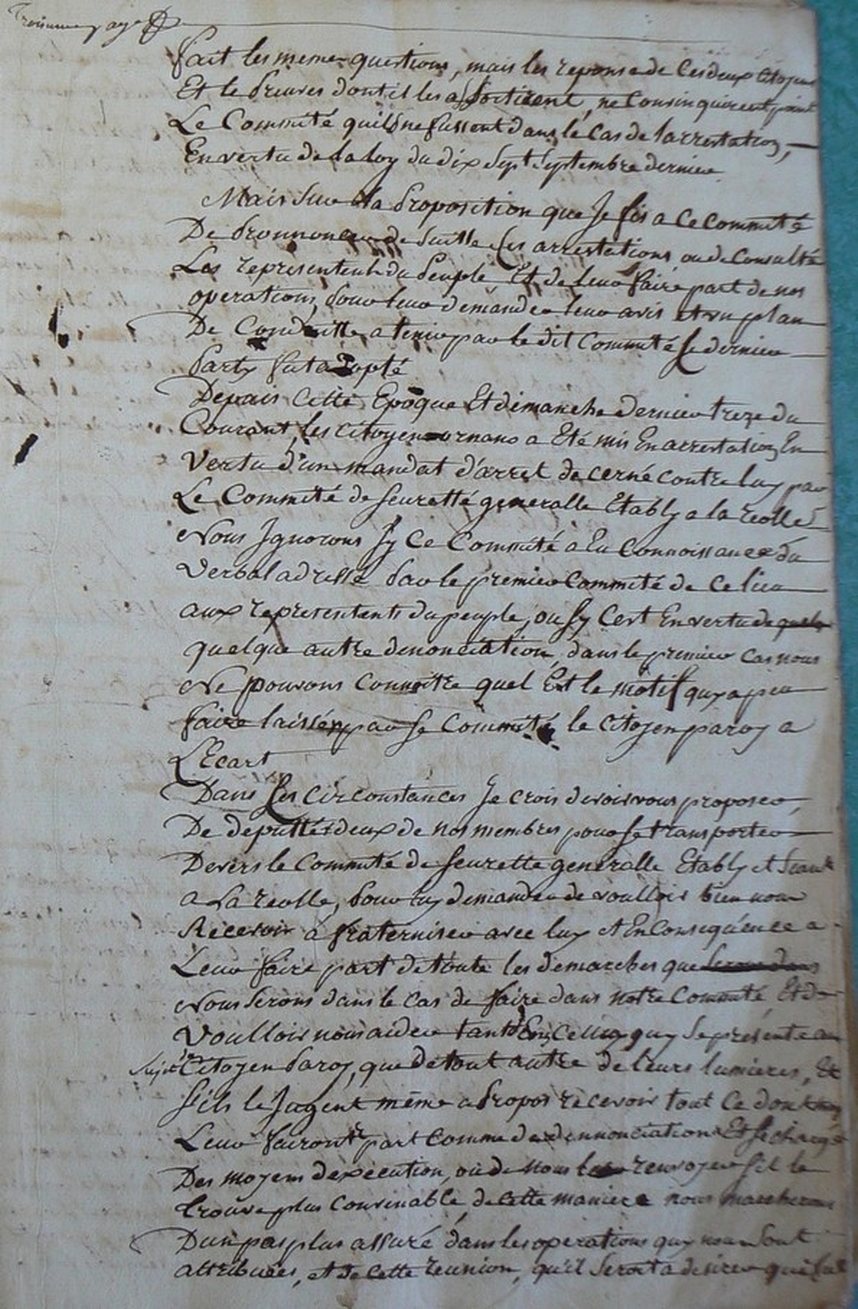 Troisieme page
fait les meme questions, mais les reponse de Ces deux Citoyens
Et le preuves dont il les assortirent, ne Convinquirent point
Le Commité quils ne fussent dans le Cas de larrestation,
En vertu de la loy du dix Sept Septembre dernier
Mais sur la proposition que Je fis a Ce Commité
De pronnoncer de suitte Ces arrestations ou de Consulté
Les representents du peuple Et de leur faire part de nos
operations, pour leur demander leur avis et un plan
De Conduitte a tenir par le dit Commité Ce dernier
party fut adopté
Depuis Cette Epoque Et dimanche dernier treze du
Courant, les Citoyen ornano a Eté mis En arrestation En
Vertu d'un mandat d'arret decerné contre luy par
Le Commité de Seuretté generalle Etably a la reolle
Nous Jgnorons Sy Ce Commité a Eu Connoissance du
Verbal adressé par le premier Commité de Ce lieu
aux representents du peuple, ou Sy Cest En vertu de
quelque autre denonciation, dans le premier Cas nous
Ne pouvons Connoitre quel Est le motif quy a peu
faire laisser par Se Commité le Citoyen paroy a
LEcart
Dans Ces Circonstances Je crois devoir vous proposer,
De deputter deux de nos membres pour se transporter
Devers le Commité de Seurette generalle Etably et Seant
a La reolle, pour luy demander de voulloir bien nous
Recevoir a fraterniser avec luy et En Consequence a
Leur faire part de toute les demarches que
Nous Serons dans le Cas de faire dans notre Commité Et de
Voulloir nous aider tant En Celle quy Se presente au
Sujet du Citoyen paroy, que de tout autre de leurs lumieres, Et
Sils le Jugent même a propos recevoir tout Ce dont
Leur fairont part Comme de denonciation Et se charger
Des moyens dexecution, ou de nous renvoyer Sil le
trouve plus Convinable, de Cette maniere nous marcherons
Dun pas plus assuré dans les operations quy nous Sont
attribuées, et de Cette reunion, qu'il Seroit a desirer